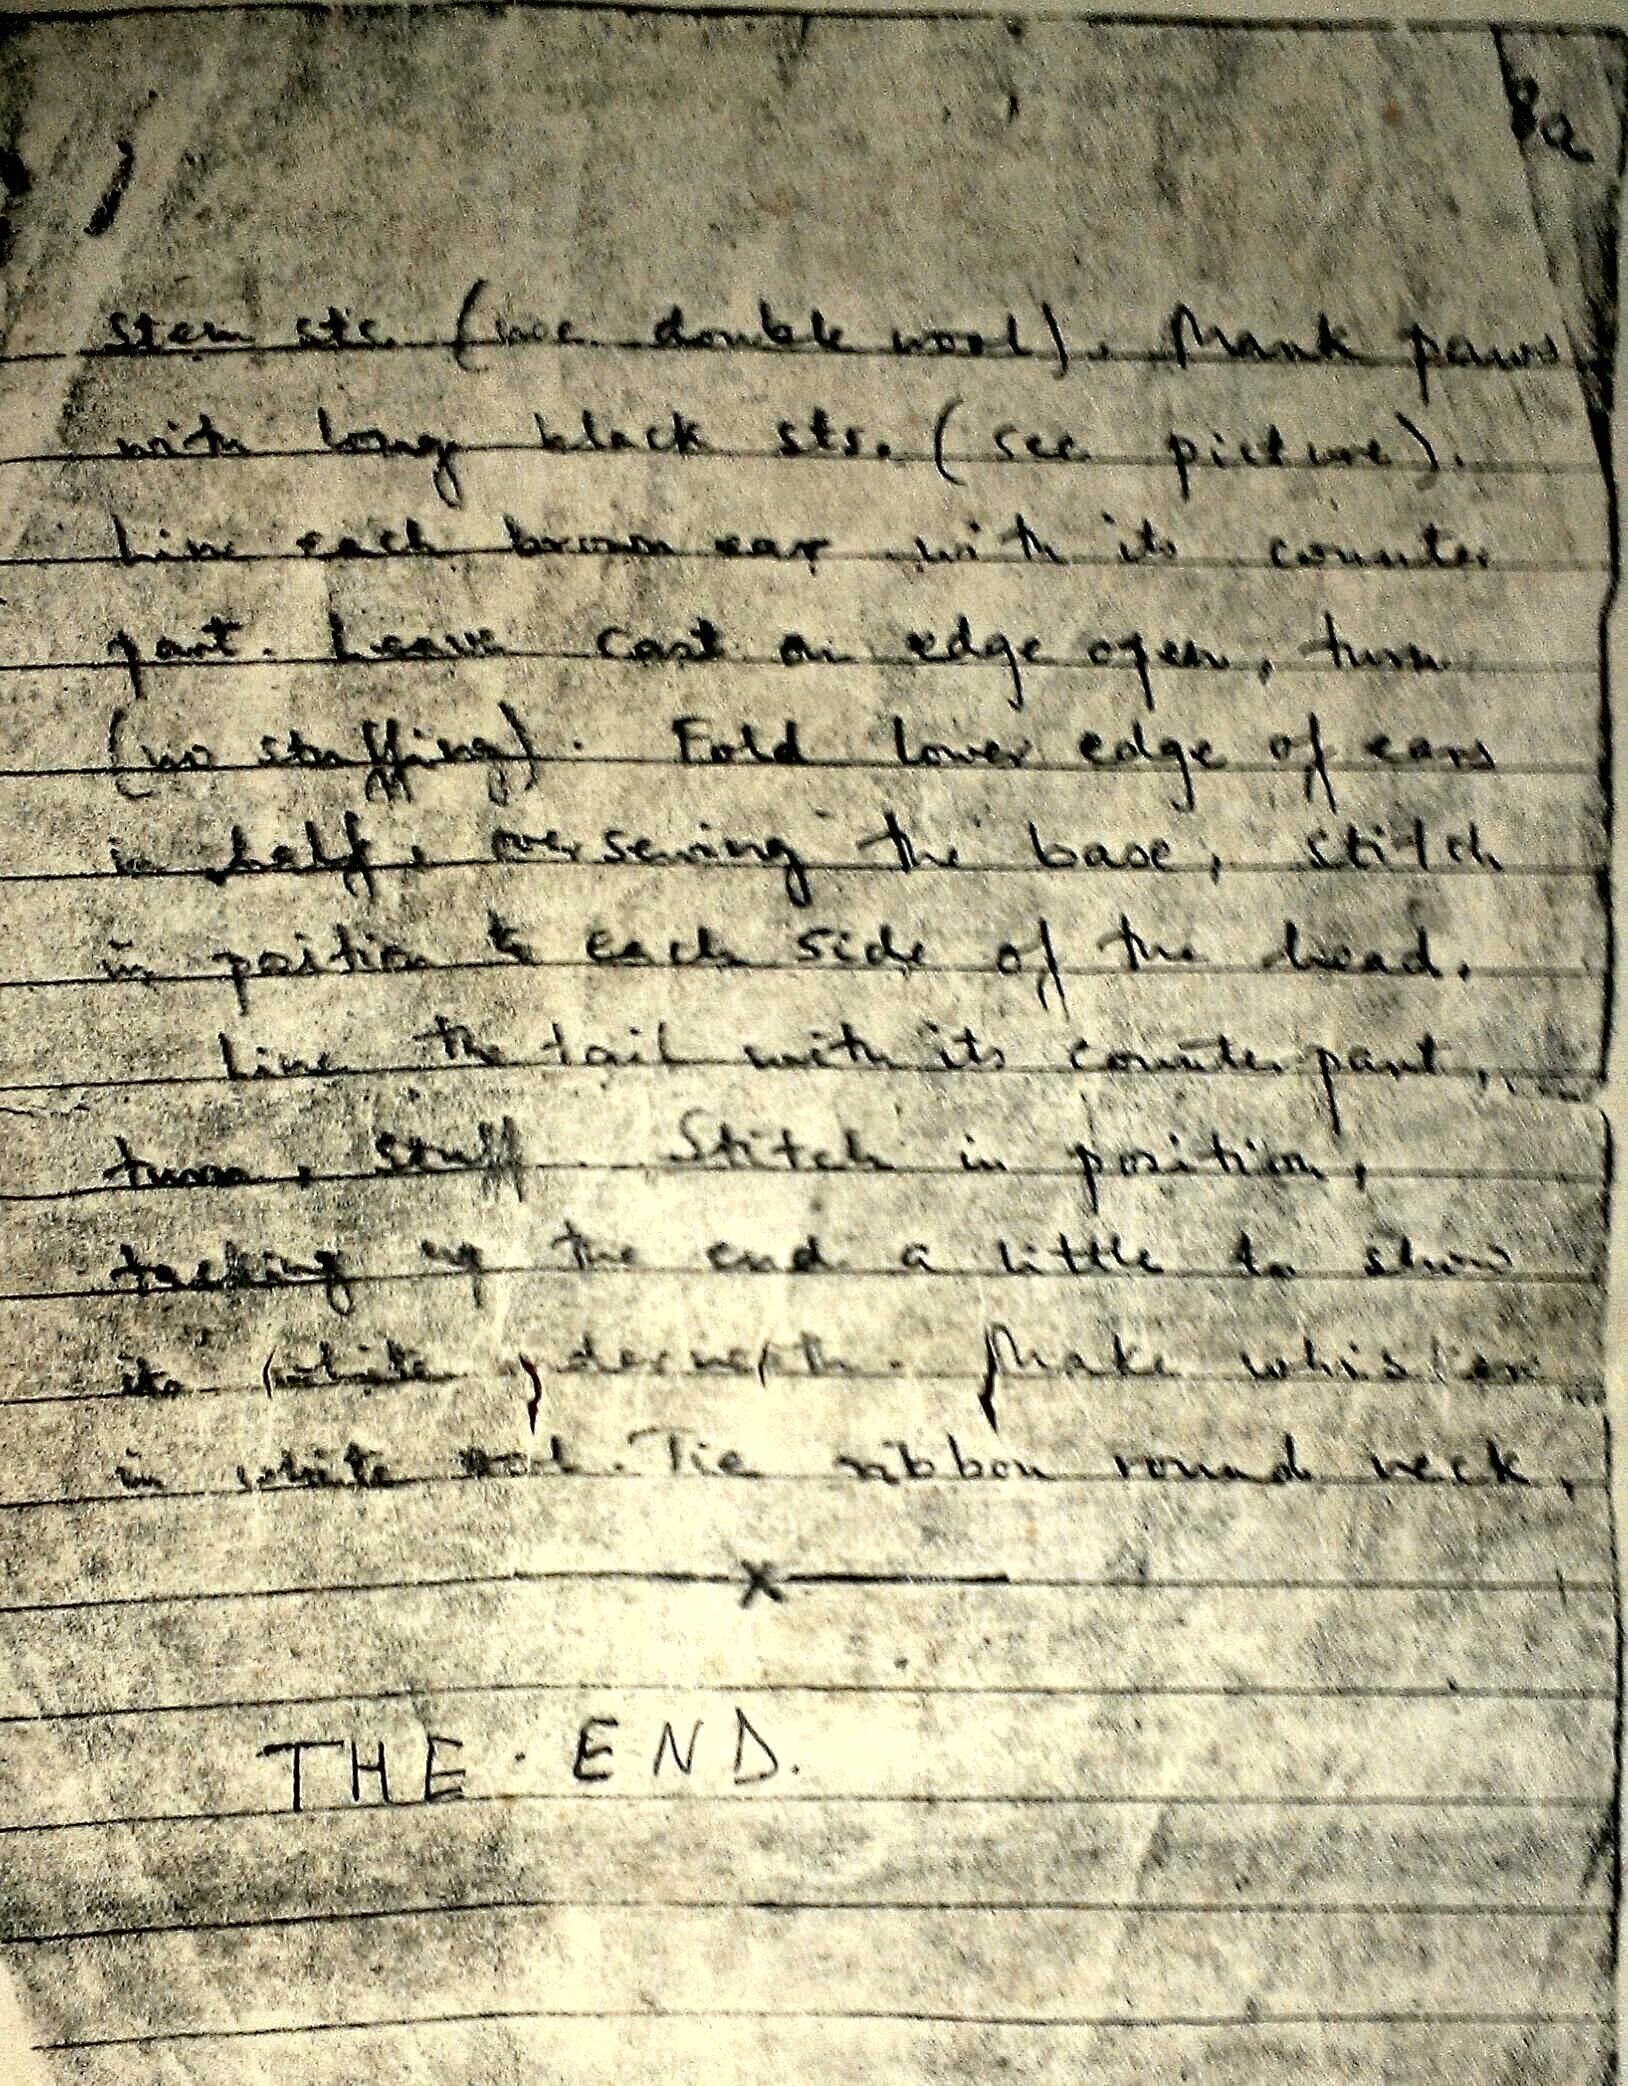 82
stem sts. (use double wool). Mark paws
with long black sts. (see picture).
Line each brown ear with its counter
part. Leave cast on edge open, turn
(no stuffing). Fold lower edge of ears
in half, over sewing the base, stitch
in position to each side of the head.
Line the tail with its counter part,
turn, stuff. Stitch in position,
tacking up the end a little to show
its white . Make whisker
in white wool. Tie ribbon round neck.
x
THE END.